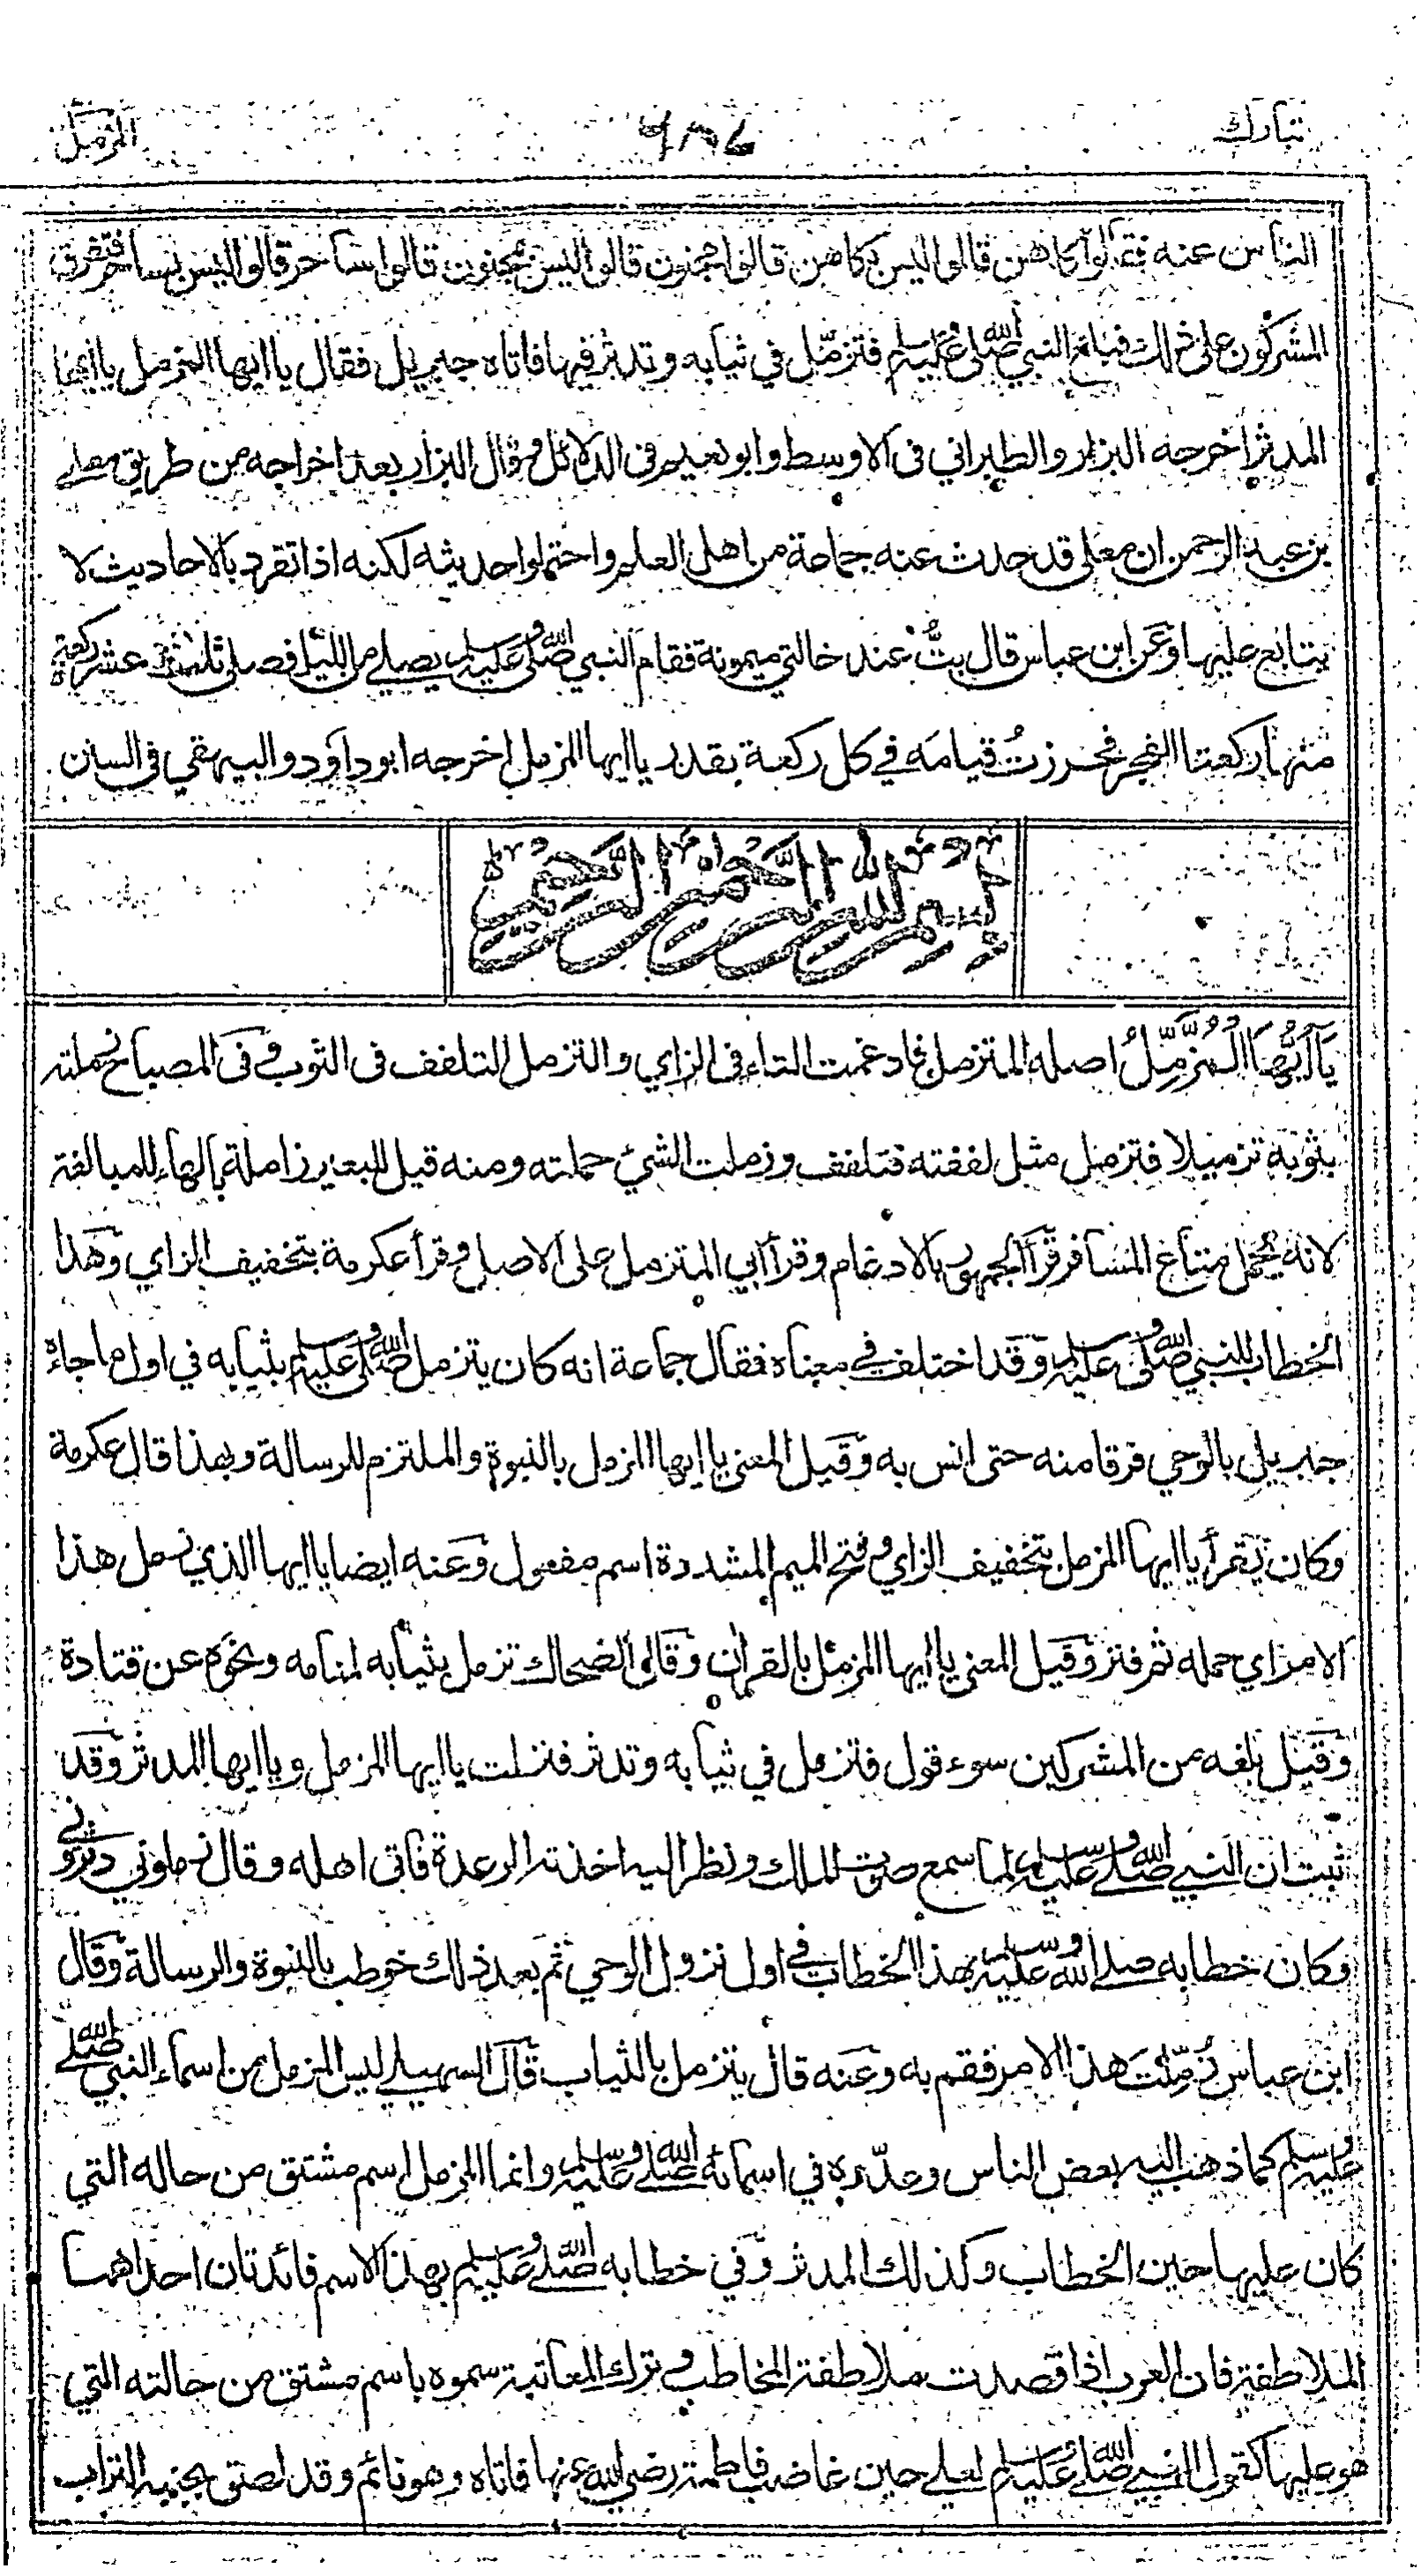 تبارك المزمل
الناس عنه فقالوا كاهن قالوا ليس بكاهن قالوا مجنون قالوا ليس بمجنون قالوا ساحر قالوا ليس بساحر فتفرق
المشركون على ذلك فبلغ النبي صلى الله عليه وسلم فتزمّل في ثيابه وتدثر فيها فاتاه جبريل فقال يا ايها المزمل يا ايها
المدثر اخرجه البزار والطبراني فى الاوسط وابو نعيم فى الدلائل وقال البزار بعد اخراجه من طريق معلے
بن عبد الرحمن ان معلى قد حدث عنه جماعة من اهل العلم واحتملوا حديثه لكنه اذا تفرد بالاحاديث لا
يتابع عليها وعن ابن عباس قال بتُّ عند خالتي ميمونة فقام النبي صلى الله عليه وسلم يصلے من الليل فصلى ثلث عشر ركعة
منها ركعتا الفجر فحرزتُ قيامَه في كل ركعة بقدر يا ايها المزمل اخرجه ابو داود والبيهقي فى السنن
بسم الله الرحمن الرحيم
يَا أَيُّهَا الْمُزَّمِّلُ اصله المتزمل فادغمت التاء فى الزاي والتزمل التلفف فى الثوب وفى المصباح زملته
بثوبه تزميلا فتزمل مثل لففته فتلفف وزملت الشئ حملته ومنه قيل للبعير زاملة بالهاء للمبالغة
لانه يحمل متاع المسافر قرأ الجمهور بالادغام وقرأ ابي المتزمل على الاصل وقرأ عكرمة بتخفيف الزاي وهذا
الخطاب للنبي صلى الله عليه وسلم وقد اختلف في معناه فقال جماعة انه كان يتزمل صلى الله عليه وسلم بثيابه في اول ما جاءه
جبريل بالوحي فرقا منه حتى انس به وقيل المعنى يا ايها المزمل بالنبوة والملتزم للرسالة وبهذا قال عكرمة
وكان يقرأ يا ايها المزمل بتخفيف الزاي وفتح الميم المشددة اسم مفعول وعنه ايضا يا ايها الذي زمل هذا
الامر اي حمله ثم فتر وقيل المعنى يا ايها المزمل بالقرآن وقال الضحاك تزمل بثيابه لمنامه ونحوه عن قتادة
وقيل بلغه من المشركين سوء قول فتزمل في ثيابه وتدثر فنزلت يا ايها المزمل ويا ايها المدثر وقد
ثبت ان النبي صلى الله عليه وسلم لما سمع صوت الملك ونظر اليه اخذته الرعدة فاتى اهله وقال زملوني دثروني
وكان خطابه صلے الله عليه وسلم بهذا الخطاب في اول نزول الوحي ثم بعد ذلك خوطب بالنبوة والرسالة وقال
ابن عباس زُمِّلْتَ هذا الامر فقم به وعنه قال يتزمل بالثياب قال السهيلے ليس المزمل من اسماء النبي صلے الله
عليه وسلم كما ذهب اليه بعض الناس وعدّوه في اسمائه صلے الله عليه وسلم وانما المزمل اسم مشتق من حاله التي
كان عليها حين الخطاب وكذلك المدثر وفي خطابه صلے الله عليه وسلم بهذا الاسم فائدتان احداهما
الملاطفة فان العرب اذا قصدت ملاطفة المخاطب وترك المعاتبة سموه باسم مشتق من حالته التي
هو عليها كقول النبي صلے الله عليه وسلم لعلے حين غاضب فاطمة رضي الله عنها فاتاه وهو نائم وقد لصق بجنبه التراب